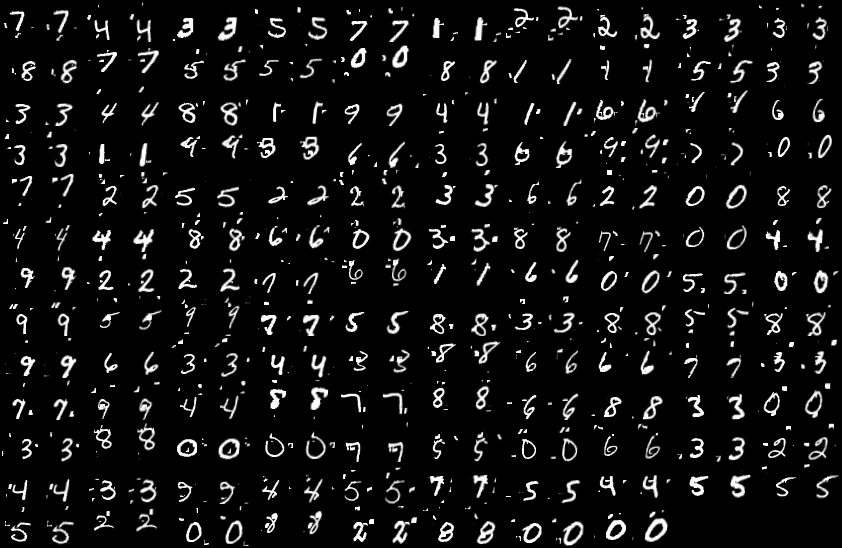 7 7 4 4 3 3 5 5 7 7 1 1 2 2 2 2 3 3 3 3
8 8 7 7 5 5 5 5 0 0 8 8 1 1 1 1 5 5 3 3
3 3 4 4 8 8 1 1 9 9 4 4 1 1 6 6 1 1 6 6
3 3 1 1 4 4 3 3 6 6 3 3 0 0 9 9 7 7 0 0
7 7 2 2 5 5 2 2 2 2 3 3 6 6 2 2 0 0 8 8
4 4 4 4 8 8 6 6 0 0 3 3 8 8 7 7 0 0 4 4
9 9 2 2 2 2 7 7 6 6 1 1 6 6 0 0 5 5 0 0
9 9 5 5 9 9 7 7 5 5 8 8 3 3 8 8 5 5 8 8
9 9 6 6 3 3 4 4 3 3 8 8 6 6 6 6 7 7 3 3
7 7 9 9 4 4 8 8 7 7 8 8 6 6 8 8 3 3 0 0
3 3 8 8 0 0 0 0 7 7 5 5 0 0 6 6 3 3 2 2
4 4 3 3 9 9 4 4 5 5 7 7 5 5 4 4 5 5 5 5
5 5 2 2 0 0 8 8 2 2 8 8 0 0 0 0